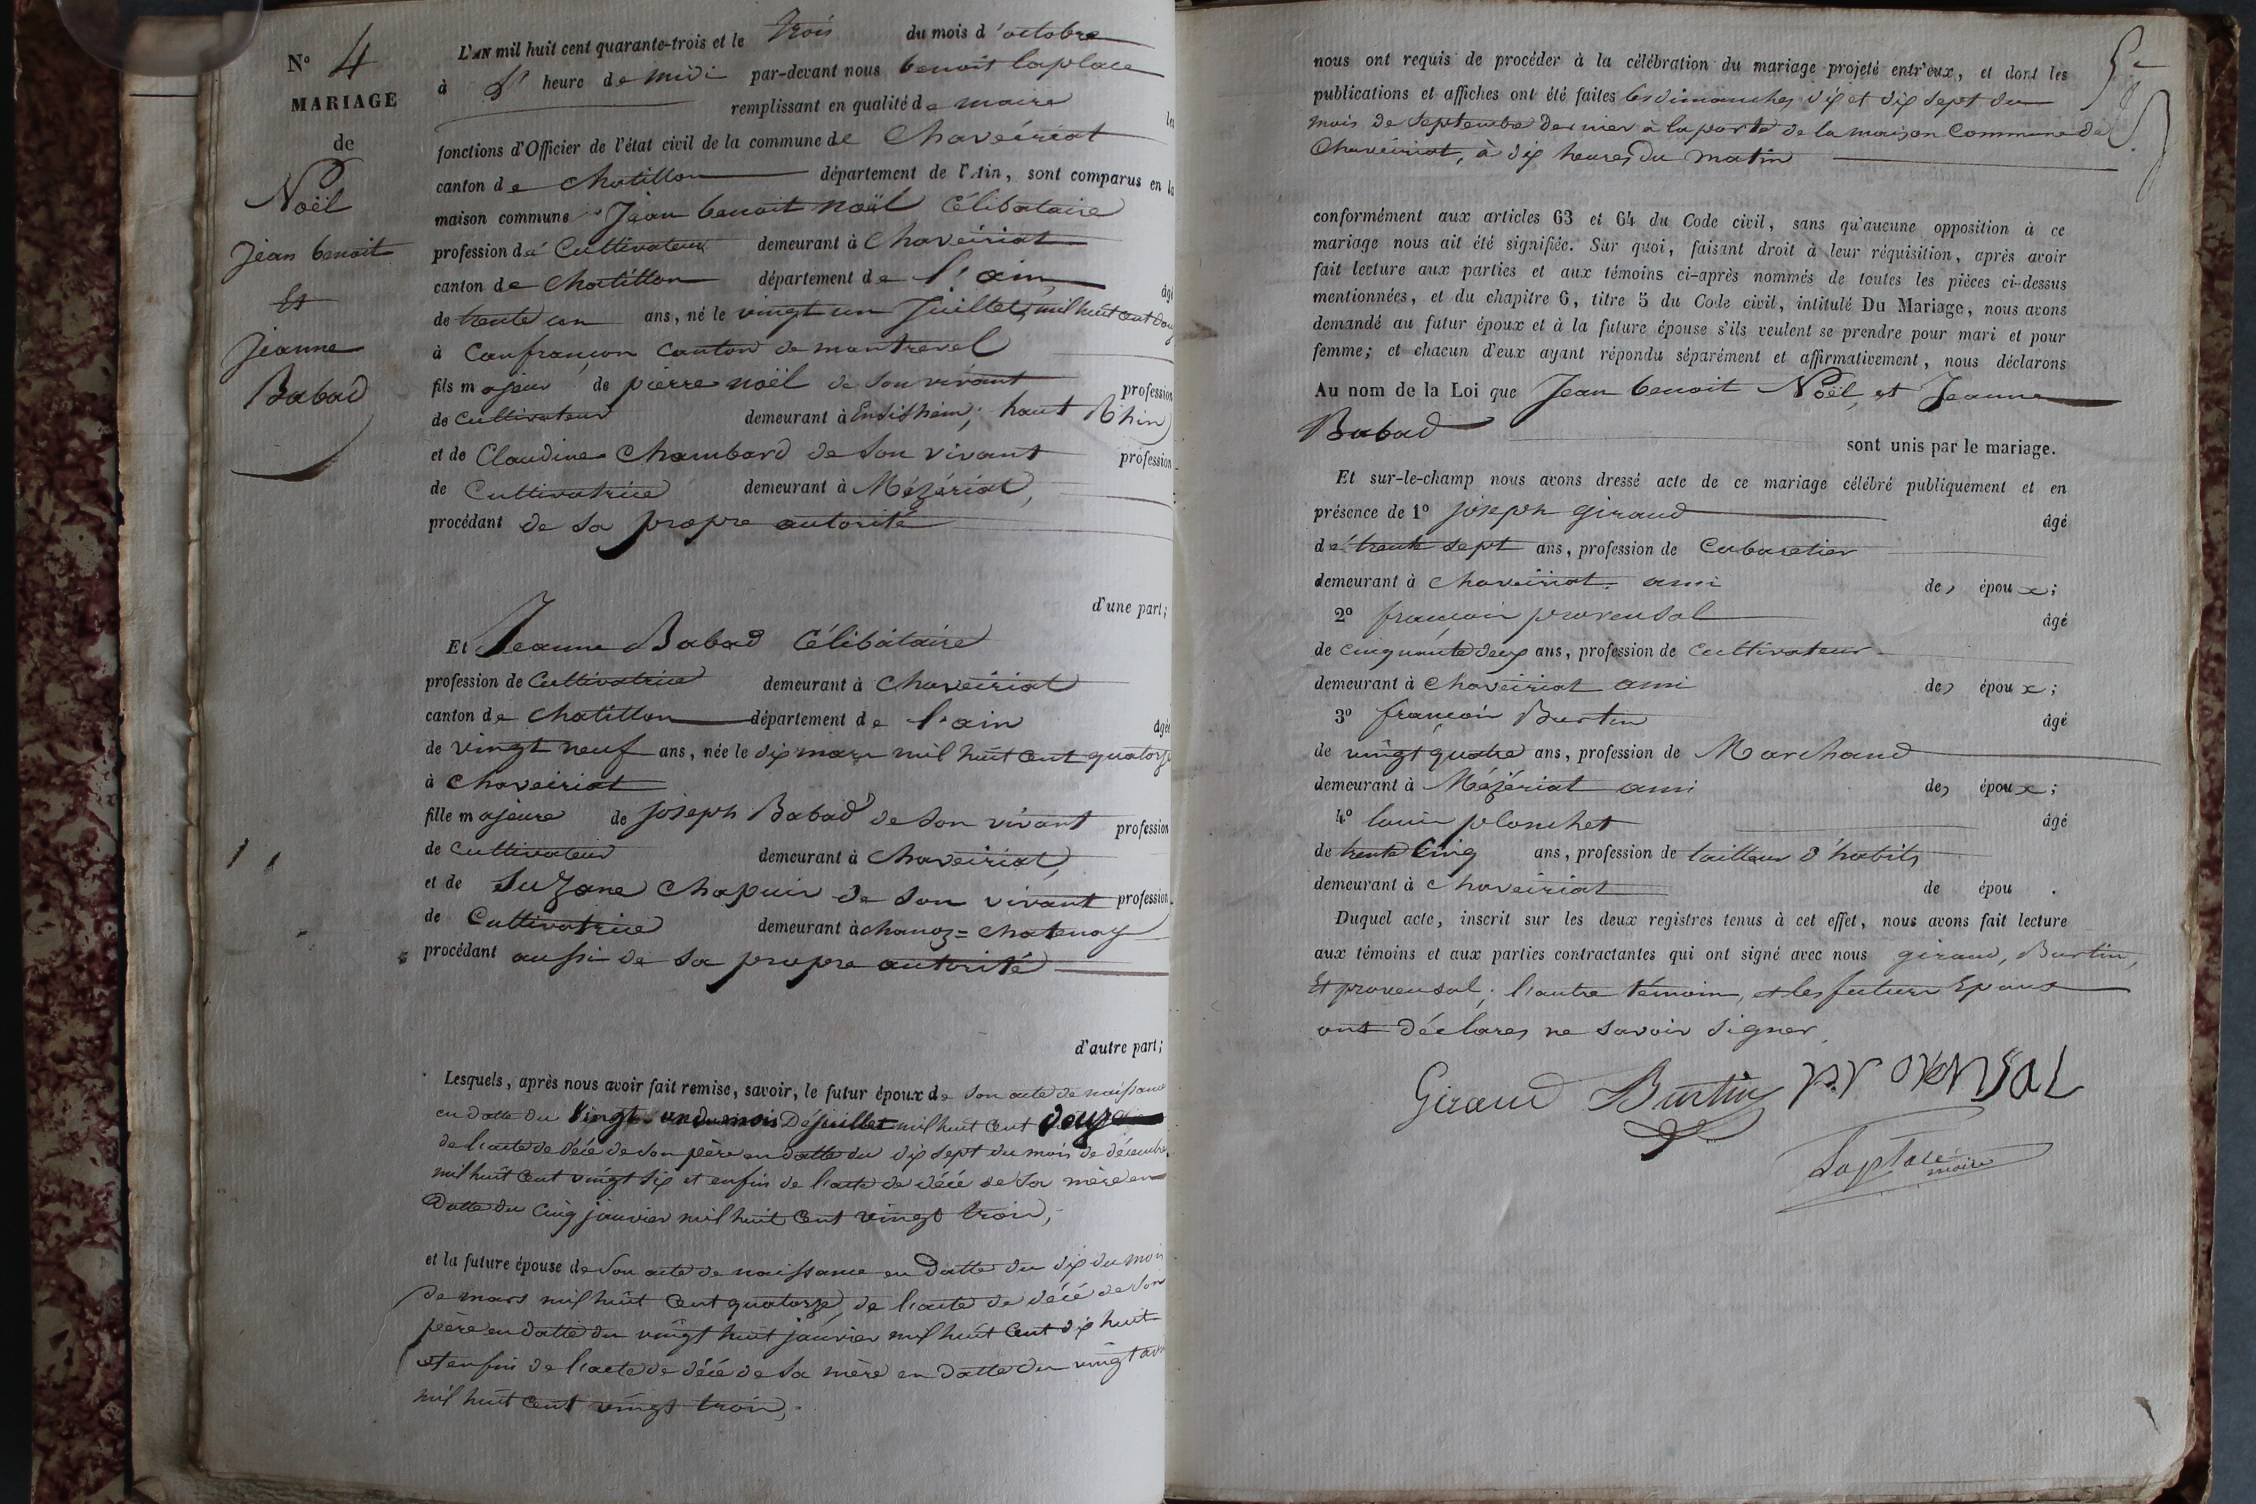 N° 4
MARIAGE
de
Noël
Jean benoit
Et
Jeanne
Babad
L'AN mil huit cent quarante-trois et le trois du mois d'octobre
à heure de midi par-devant nous benoit laplace
remplissant en qualité de maire les
fonctions d'Officier de l'état civil de la commune de Chaveiriat
canton de Chatillon département de l'Ain, sont comparus en la
maison commune Jean benoit noël Célibataire
profession de Cultivateur demeurant à Chaveiriat
canton de Chatillon département de l'ain âgé
de trente un ans, né le vingt un Juillet mil huit Cent douze
à Confrançon Canton de montrevel
fils majeur de pierre noël de son vivant profession
de Cultivateur demeurant à Ensisheim, haut Rhin
et de Claudine Chambard de son vivant profession
de Cultivatrice demeurant à Mézériat,
procédant de sa propre autorité
d'une part;
Et Jeanne Babad Célibataire
profession de Cultivatrice demeurant à Chaveiriat
canton de Chatillon département de l'ain âgée
de vingt neuf ans, née le dix mars mil huit Cent quatorze
à Chaveiriat
fille majeure de joseph Babad de son vivant profession
de Cultivateur demeurant à Chaveiriat,
et de Suzane Chapuis de son vivant profession
de Cultivatrice demeurant à chanoz=chatenay
procédant aussi de sa propre autorité
d'autre part;
Lesquels, après nous avoir fait remise, savoir, le futur époux de son acte de naissance
en datte du Vingt un du mois De juillet mil huit Cent douze
de l'acte de décé de son père en datte du dix sept du mois de décembre
mil huit Cent vingt six et enfin de l'acte de décé de sa mère en
Datte du Cinq janvier mil huit Cent vingt trois,
et la future épouse de son acte de naissance en Datte du dix du mois
de mars mil huit Cent quatorze, de l'acte de décé de son
père en datte du vingt huit janvier mil huit Cent dix huit
et enfin de l'acte de décé de sa mère en datte du vingt avril
mil huit Cent vingt trois,
nous ont requis de procéder à la célébration du mariage projeté entr'eux, et dont les
publications et affiches ont été faites les dimanches dix et dix sept du
mois de Septembre Dernier à la porte de la maison Commune de
Chaveiriat, à dix heures du matin
conformément aux articles 63 et 64 du Code civil, sans qu'aucune opposition à ce
mariage nous ait été signifiée. Sur quoi, faisant droit à leur réquisition, après avoir
fait lecture aux parties et aux témoins ci-après nommés de toutes les pièces ci-dessus
mentionnées, et du chapitre 6, titre 5 du Code civil, intitulé Du Mariage, nous avons
demandé au futur époux et à la future épouse s'ils veulent se prendre pour mari et pour
femme; et chacun d'eux ayant répondu séparément et affirmativement, nous déclarons
Au nom de la Loi que Jean benoit Noël, et Jeanne
Babad
sont unis par le mariage.
Et sur-le-champ nous avons dressé acte de ce mariage célébré publiquement et en
présence de 1° joseph giraud âgé
de trente sept ans, profession de Cabaretier
demeurant à Chaveiriat ami des époux;
2° françois provensal âgé
de cinquante deux ans, profession de Cultivateur
demeurant à Chaveiriat ami des époux;
3° françois Burtin âgé
de vingt quatre ans, profession de Marchand
demeurant à Mézériat ami des époux;
4° louis planchet âgé
de trente Cinq ans, profession de tailleur d'habits
demeurant à Chaveiriat de épou .
Duquel acte, inscrit sur les deux registres tenus à cet effet, nous avons fait lecture
aux témoins et aux parties contractantes qui ont signé avec nous giraud, Burtin,
Et provensal; l'autre témoin, et les futurs Epoux
ont déclares ne savoir signer
Giraud Burtin provensal
Laplace
maire